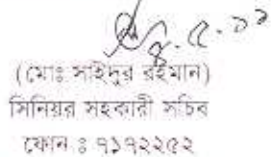 ৪.৫.১১
(মোঃ সাইদুর রহমান)
সিনিয়র সহকারী সচিব
ফোন ঃ ৭১৭২২৫২